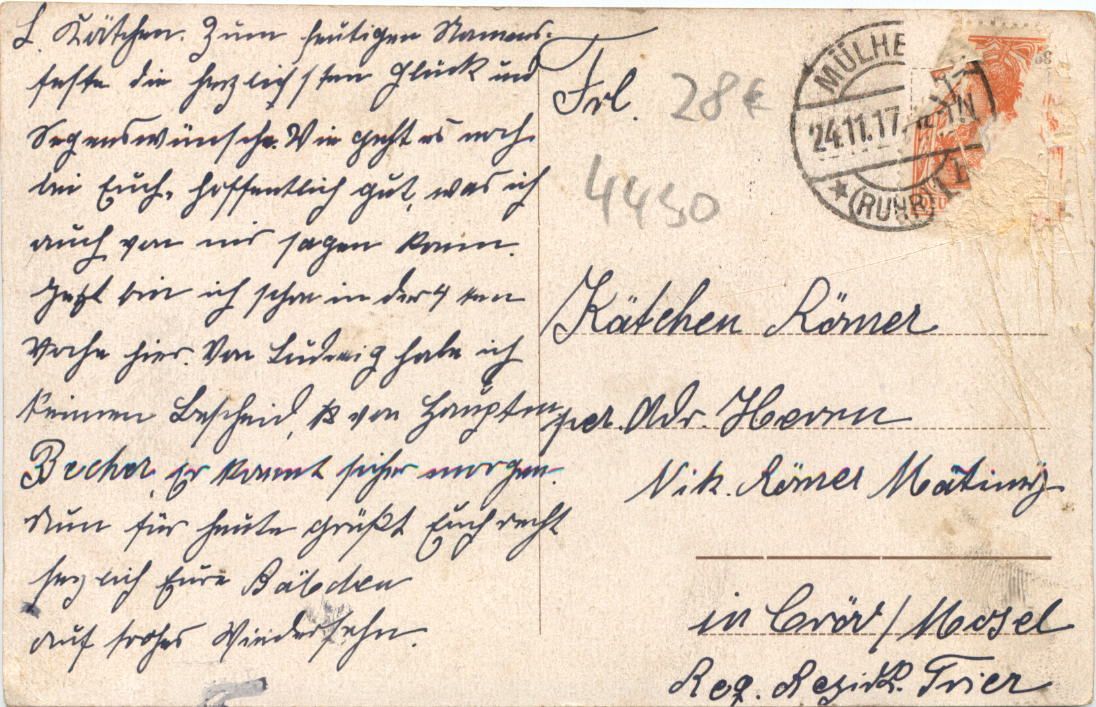 L. Kätchen. Zum heutigen Namens-
feste die herzlichsten Glück und
Segenswünsche. Wie geht es noch
bei Euch, hoffentlich gut, was ich
auch von mir sagen kann.
Jetzt bin ich schon in der 4 ten
Woche hier. Von Ludwig habe ich
keinen Bescheid, von Hauptm
Becher. Er kommt sicher morgen.
Nun für heute grüßt Euch recht
herzlich Eure Bäbchen
auf frohes Wiedersehn.
Frl.
28€
4430
MÜLHE
24.11.17.
(RUHR)
Kätchen Römer
per. Adr. Herrn
Nik. Römer
in Cröv / Mosel
Reg. Bezirk. Trier